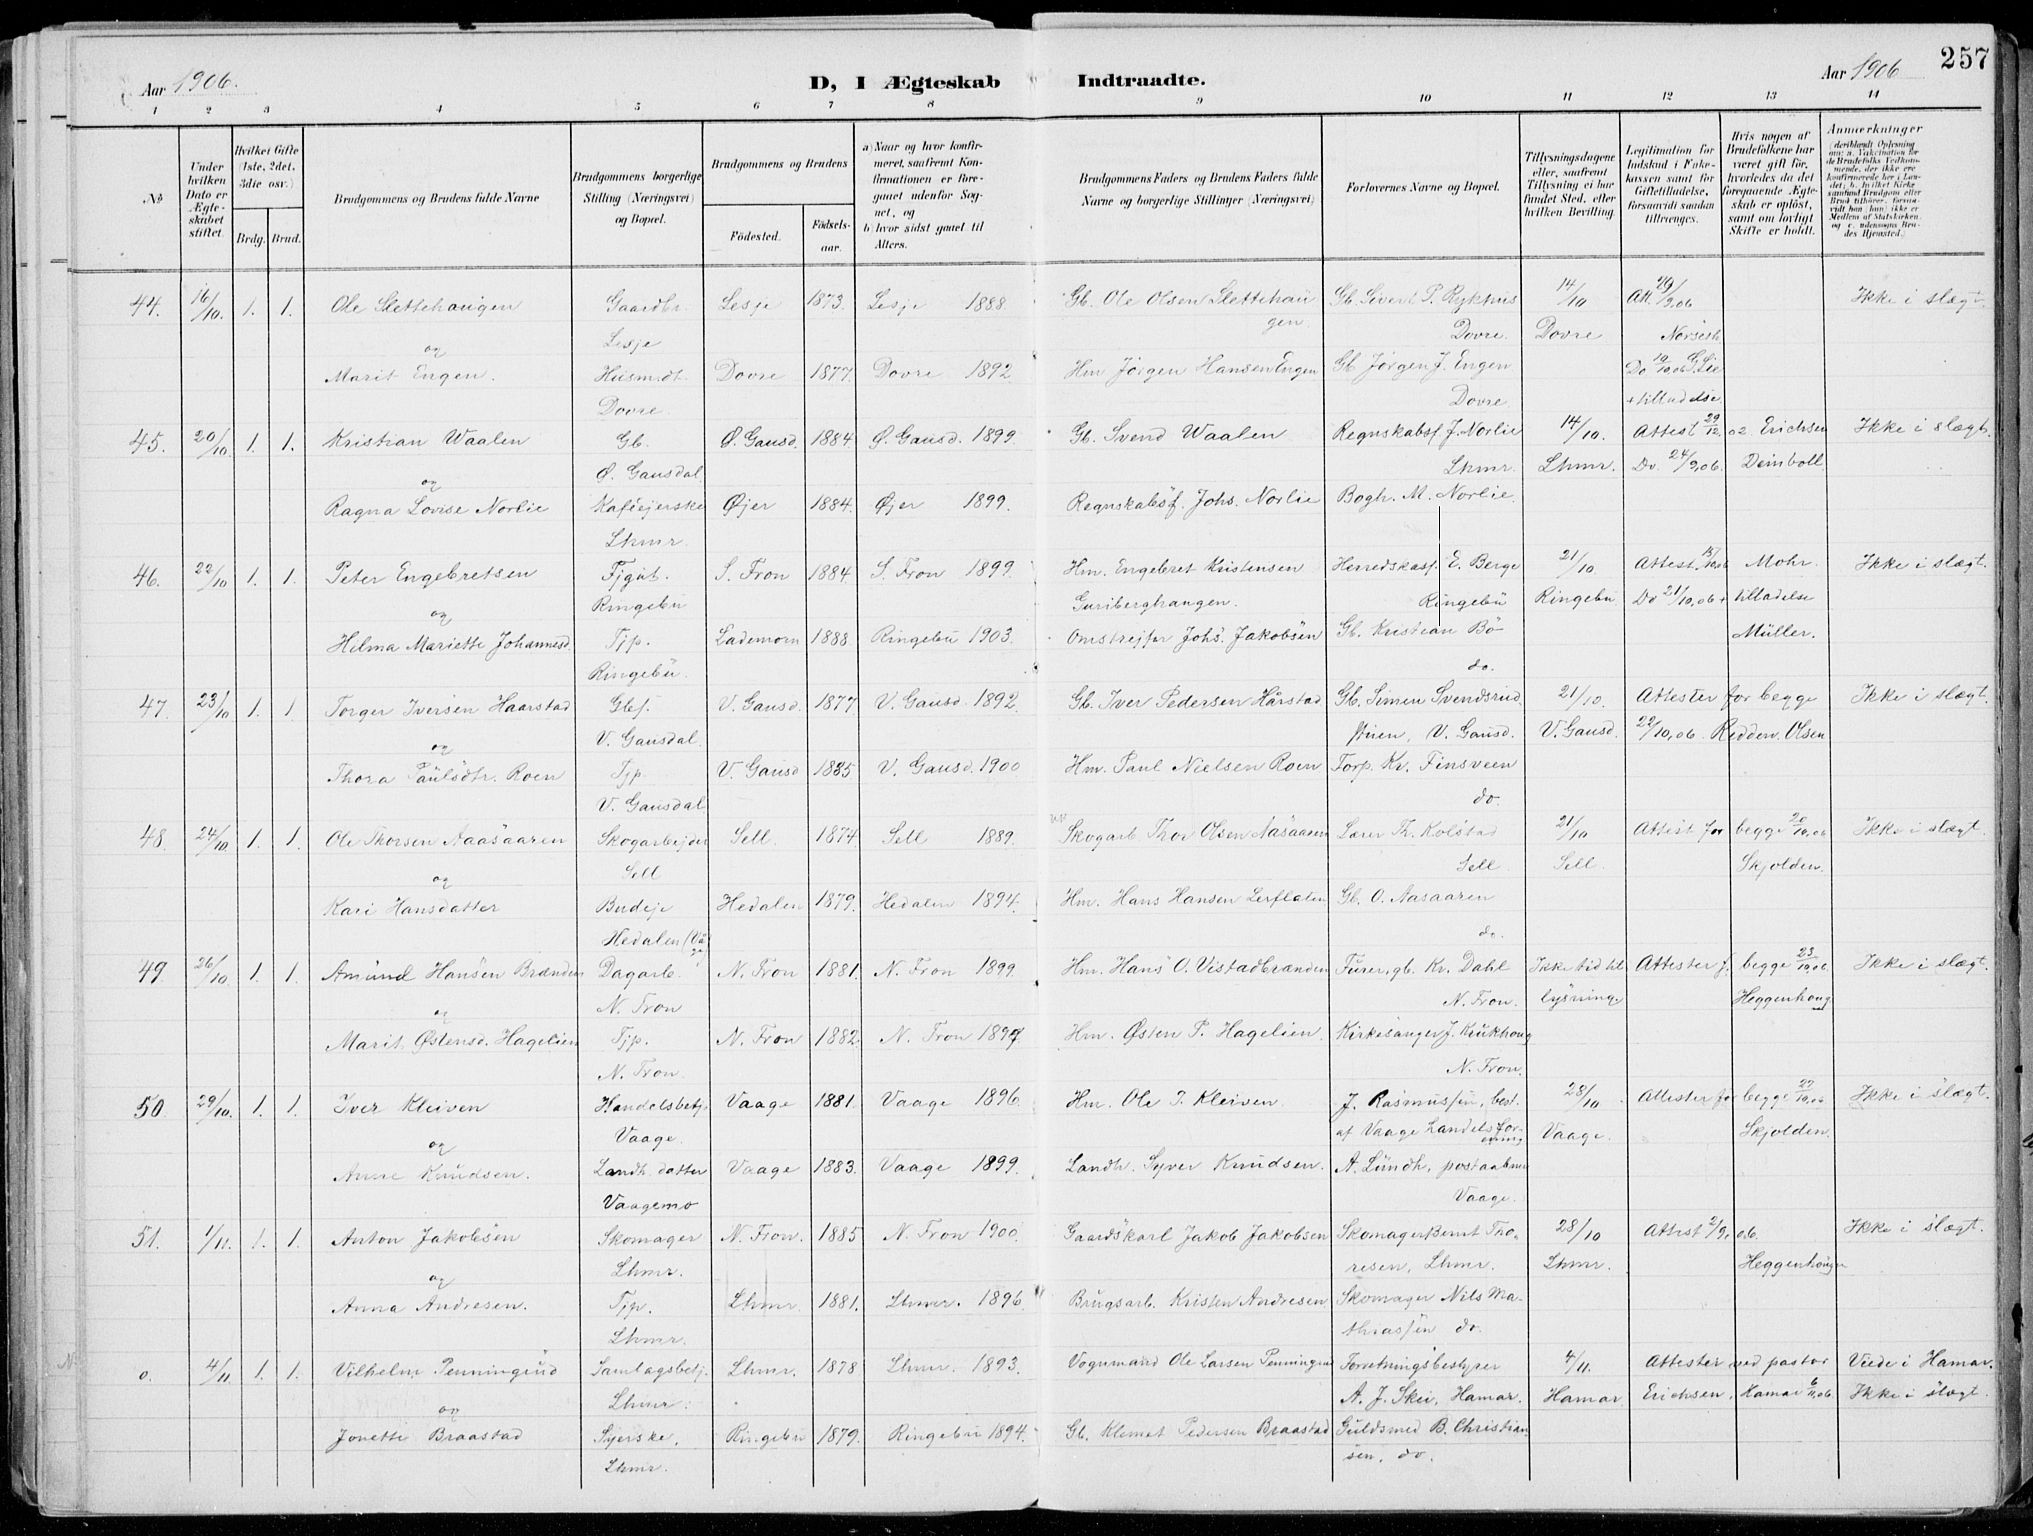 Aar 1906.
D, I Ægteskab Indtraadte.
Aar 1906
257
1 2 3 4 5 6 7 8 9 10 11 12 13 14
№
Under hvilken Dato er Ægteskabet stiftet.
Hvilket Gifte (1ste, 2det, 3die osv.)
Brdg. Brud.
Brudgommens og Brudens fulde Navne
Brudgommens borgerlige Stilling (Næringsvei) og Bopæl.
Brudgommens og Brudens
Födested. Födselsaar.
a) Naar og hvor konfirmeret, saafremt Konfirmationen er foregaaet udenfor Sognet, og
b) hvor sidst gaaet til Alters.
Brudgommens Faders og Brudens Faders fulde Navne og borgerlige Stillinger (Næringsvei)
Forlovernes Navne og Bopæl.
Tillysningsdagene eller, saafremt Tillysning ei har fundet Sted, efter hvilken Bevilling.
Legitimation for Indskud i Enkekassen samt for Giftetilladelse, forsaavidt saadan tiltrænges.
Hvis nogen af Brudefolkene har været gift för, hvorledes da det foregaaende Ægteskab er oplöst, samt om lovligt Skifte er holdt.
Anmærkninger
44. 16/10. 1. 1. Ole Slettehaugen Gaardbr. Lesje 1873. Lesje 1888. Gb. Ole Olsen Slettehau Gb. Sivert P. Rykhus 14/10 Att. Ikke i slægt.
Lesje gen Dovre. Dovre
og
Marit Engen. Husmdt. Dovre 1877. Dovre 1892 Hm Jørgen Hansen Engen Gb Jørgen J. Engen
Dovre. Dovre + tilladelse
45. 20/10. 1. 1. Kristian Waalen Gb. Ø. Gausd. 1884. Ø. Gausd. 1899. Gb. Svend Waalen Regnskabsf. J. Norlie 14/10. Attest 29/12. 02. Erichsen Ikke i slægt.
Ø. Gausdal. Lhmr. Lhmr. Do. 24/9.06. Deinboll
og
Ragna Lovise Norlie Kaféejerske Øjer 1884. Øjer 1899. Regnskabsf. Johs. Norlie Bogh. M. Norlie.
Lhmr.
46. 22/10 1. 1. Peter Engebretsen Tjgut. S. Fron 1884 S. Fron 1899. Hm. Engebret Kristensen Herredskasf. E. Berge 21/10 Attest Mohr. Ikke i slægt.
Ringebu Guriberghaugen. Ringebu Ringebu Do 21/10.06 + tilladelse
og
Helma Mariette Johannesd. Tjp. Lademoen 1888. Ringebu 1903. Omstrejfer Johs. Jakobsen Gb. Kristian Bö Müller.
Ringebu. do.
47. 23/10 1. 1. Torger Iversen Haarstad Gbs. V. Gausd. 1877 V. Gausd. 1892. Gb. Iver Pedersen Hårstad Gb. Simen Svendsrud 21/10. Attester for begge Ikke i slægt.
V. Gausdal. V. Gausd. V. Gausd. 22/10.06. Redderv. Olsen
og
Thora Paulsdtr. Roen Tjp. V. Gausd 1885 V. Gausd. 1900 Hm. Paul Nielsen Roen Torp. Kr. Finsveen
V. Gausdal do.
48. 24/10. 1. 1. Ole Thorsen Aasaaren Skogarbejder Sell. 1874. Sell 1889. Skogarb Thor Olsen Aasaaren Lærer Th. Kolstad 21/10 Attest for begge 20/10.06 Ikke i slægt.
Sell Sell Sell. Skjolden.
og
Kari Hansdatter Budeje Hedalen 1879. Hedalen 1894. Hm. Hans Hansen Lerflaten Gb. O. Aasaaren
Hedalen (Våge) do.
49. 26/10. 1. 1. Amund Hansen Brænden Dagarb. N. Fron 1881. N. Fron 1899. Hm. Hans O. Vistadbrænden Furer, gb. Kr. Dahl Ikke tid til Attester f. begge 23/10.06. Ikke i slægt.
N. Fron N. Fron. lysning. Heggenhoug
og
Marit Østensd. Hagelien Tjp. N. Fron 1882. N. Fron 1897 Hm. Østen P. Hagelien. Kirkesanger J. Krukhoug
N. Fron. N. Fron.
50 29/10. 1. 1. Iver Kleiven Handelsbetj. Vaage 1881. Vaage 1896. Hm. Ole I. Kleiven. J. Rasmussen, best. 28/10 Attester for begge 27/10.06 Ikke i slægt.
Vaage. af Vaage Handelsforening Vaage. Skjolden.
og
Anne Knudsen. Landh. datter Vaage 1883. Vaage 1899. Landh. Syver Knudsen. A. Lundh, postaabner
Vaagemo Vaage.
51. 1/11. 1. 1. Anton Jakobsen Skomager N. Fron. 1885 N. Fron 1900. Gaardskarl Jakob Jakobsen Skomager Bernt Tho- 28/10 Attest 2/9. 06. Ikke i slægt.
Lhmr. resen, Lhmr. Lhmr. Heggenhougen
og
Anna Andresen. Tjp. Lhmr. 1881. Lhmr. 1896. Brugsarb. Kristen Andresen Skomager Nils Ma-
Lhmr. thiassen do.
o. 4/11 1. 1. Vilhelm Penningrud Samlagsbetj. Lhmr. 1878 Lhmr. 1893. Vognmand Ole Larsen Penningrud Forretningsbestyrer 4/11. Attester ved pastor Viede i Hamar.
Lhmr. A. J. Skei, Hamar. Hamar Erichsen, Hamar 6/11.06. Ikke i slægt.
og
Jonette Braastad Syerske, Ringebu 1879. Ringebu 1894. Gb. Klemet Pedersen Braastad Guldsmed B. Christian
Lhmr. sen, do.